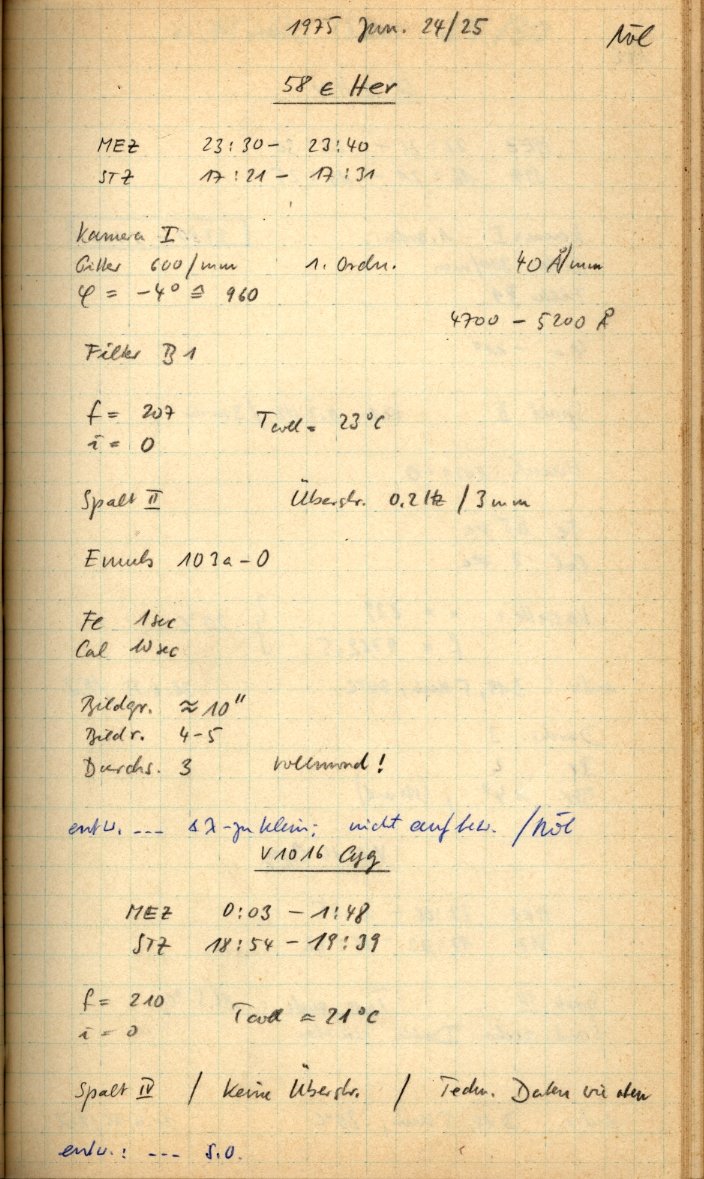 1975 Jun. 24/25 Nöl
58 ε Her
MEZ 23:30 – 23:40
STZ 17:21 – 17:31
Kamera I
Gitter 600/mm 1. Ordn. 40 Å/mm
φ = -4° ≙ 960
4700 – 5200 Å
Filter B1
f = 207 Tcoll = 23°C
i = 0
Spalt II Überstr. 0.2 Hz / 3 mm
Emuls 103a-O
Fe 1 sec
Cal 10 sec
Bildgr. ≈ 10"
Bildr. 4-5
Durchs. 3 Vollmond!
entw. --- Δλ-zu klein; nicht aufbew. /Nöl
V1016 Cyg
MEZ 0:03 – 1:48
STZ 18:54 – 19:39
f = 210 Tcoll ≈ 21°C
i = 0
Spalt IV / Keine Überstr. / Techn. Daten wie oben
entw.: --- s.o.